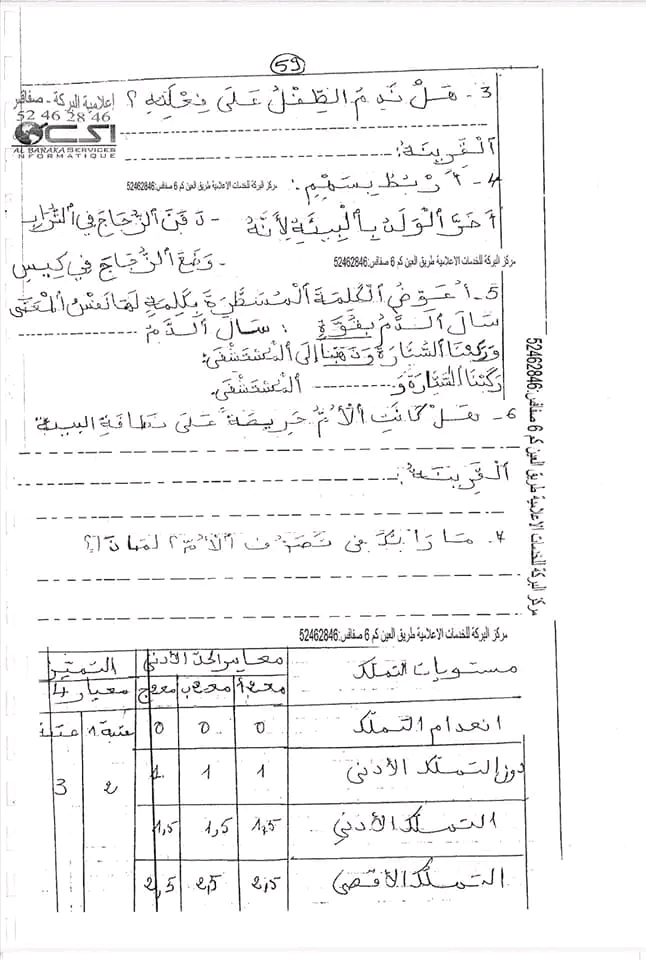 59
3- هَلْ نَدِمَ الطِّفْلُ عَلَى فِعْلَتِهِ ؟
إعلامية البركة - صفاقس
52 46 28 46
CSI
AL BARAKA SERVICES
INFORMATIQUE
القَرِينَةُ:
4- أَرْبُطُ بِسَهْمٍ:
مركز البركة للخدمات الاعلامية طريق العين كم 6 صفاقس:52462846
أَضَرَّ الْوَلَدُ بِالْبِيئَةِ لِأَنَّهُ - دَفَنَ الزُّجَاجَ فِي التُّرَابِ
مركز البركة للخدمات الاعلامية طريق العين كم 6 صفاقس:52462846
- وَضَعَ الزُّجَاجَ فِي كِيسٍ
5- أُعَوِّضُ الْكَلِمَةَ الْمُسَطَّرَةَ بِكَلِمَةٍ لَهَا نَفْسُ الْمَعْنَى
سَالَ الدَّمُ بِقُوَّةٍ : سَالَ الدَّمُ
وَرَكِبْنَا السَّيَّارَةَ وَذَهَبْنَا إِلَى الْمُسْتَشْفَى:
رَكِبْنَا السَّيَّارَةَ وَ الْمُسْتَشْفَى.
6- هَلْ كَانَتِ الْأُمُّ حَرِيصَةً عَلَى نَظَافَةِ البيئة
القَرِينَةُ:
7- مَا رَأْيُكَ فِي تَصَرُّفِ الْأُمِّ؟ لِمَاذَا؟
مركز البركة للخدمات الاعلامية طريق العين كم 6 صفاقس:52462846
مركز البركة للخدمات الاعلامية طريق العين كم 6 صفاقس:52462846
مستويات التملك معايير الحد الأدنى التميّز
مع1أ مع2ب مع3ج معيار 4
انعدام التملك 0 0 0 عتبة 1 عتبة
دون التملك الأدنى 1 1 1 2 3
التملك الأدنى 1,5 1,5 1,5
التملك الأقصى 2,5 2,5 2,5